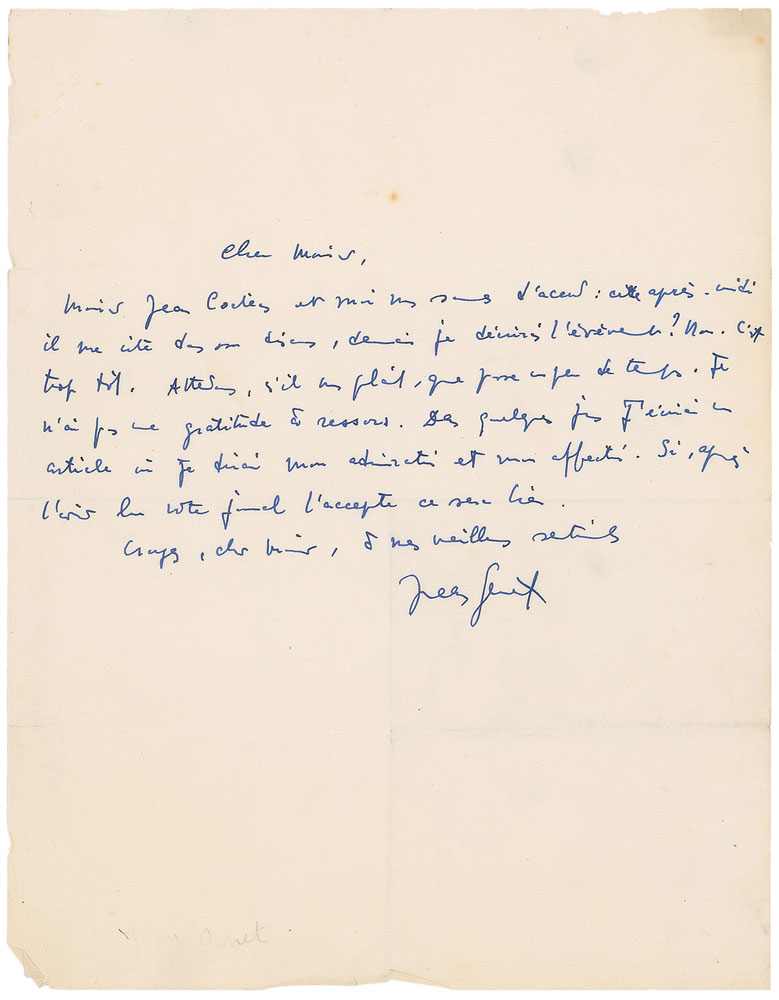 Cher Monsieur,
Jean Cocteau et moi nous sommes d'accord : cette après-midi
il me cite dans son discours, demain je décrirais l'évènement ? Non. C'est
trop tôt. Attendons, s'il vous plaît, que passe un peu de temps. Je
n'ai pas une gratitude à ressorts. Dans quelques jours j'écrirai un
article où je dirai mon admiration et mon affection. Si, après
l'avoir lu votre journal l'accepte ce sera bien.
Croyez, cher Monsieur, à mes meilleurs sentiments
Jean Genet
Genet